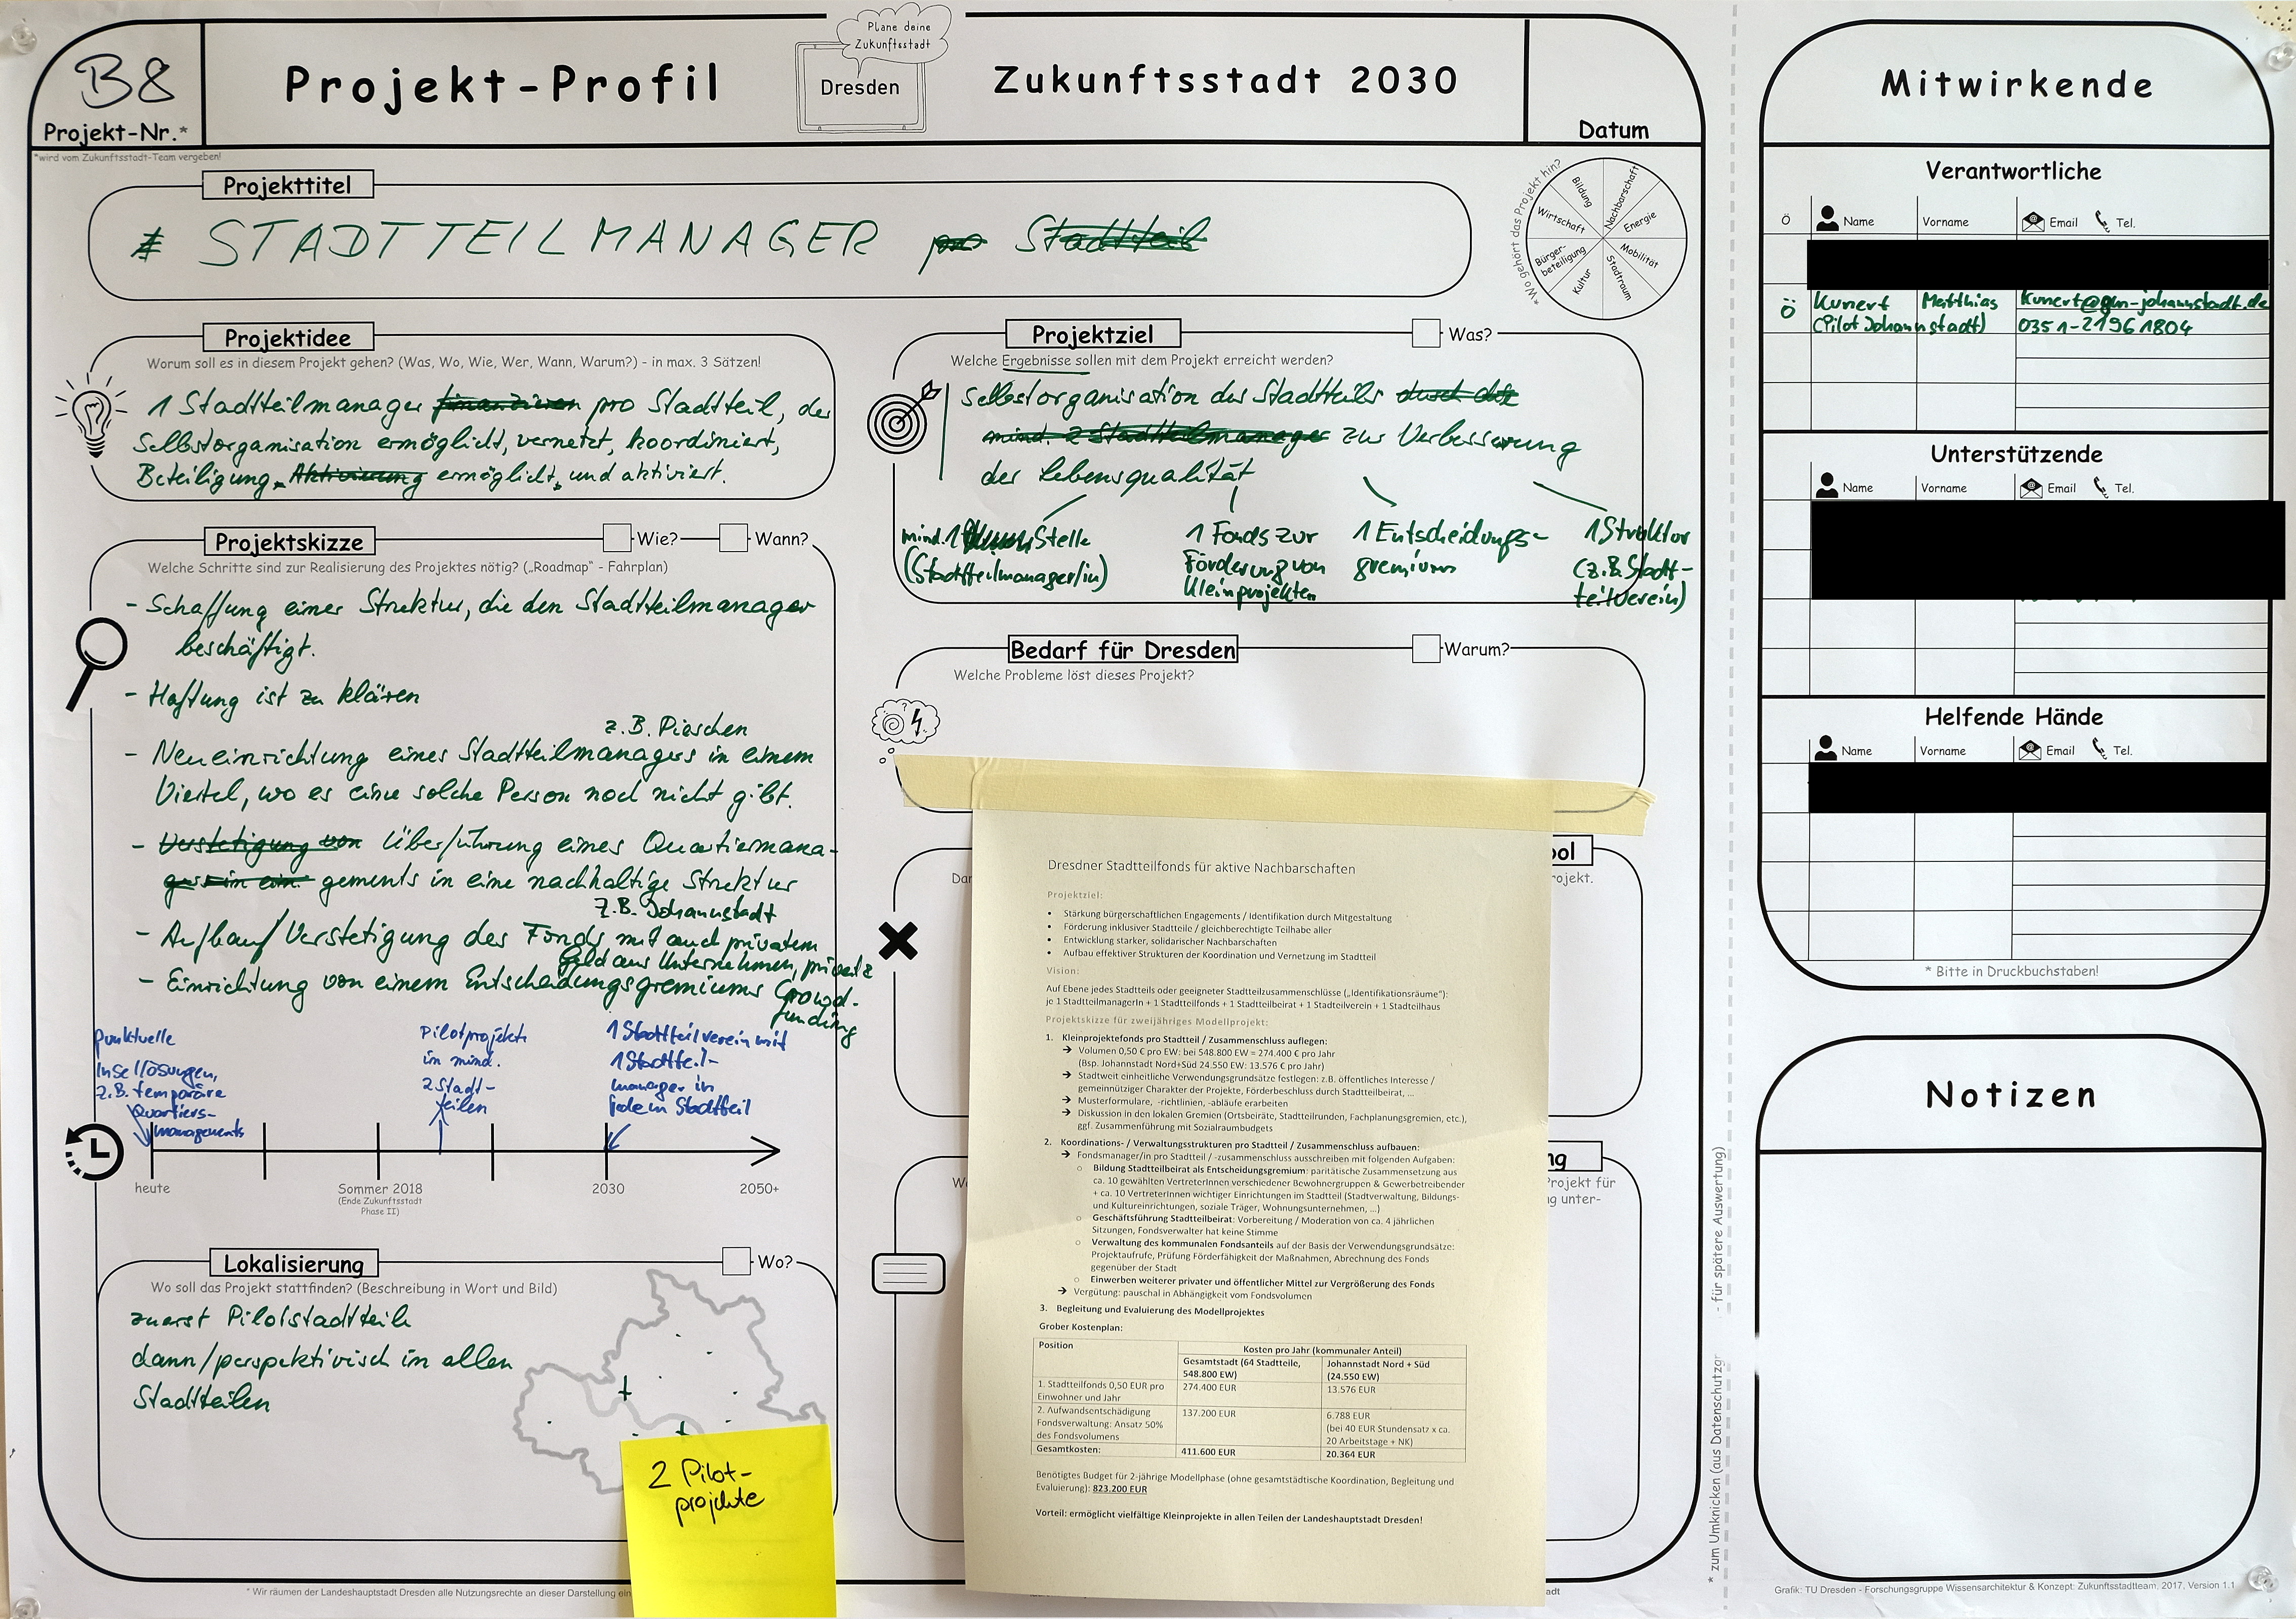 B8
Projekt-Nr.*
*wird vom Zukunftsstadt-Team vergeben!
Projekt-Profil
Plane deine
Zukunftsstadt
Dresden
Zukunftsstadt 2030
Datum
Projekttitel
STADTTEILMANAGER pro Stadtteil
*Wo gehört das Projekt hin?
Bildung
Nachbarschaft
Energie
Mobilität
Stadtraum
Kultur
Bürger-
beteiligung
Wirtschaft
Projektidee
Worum soll es in diesem Projekt gehen? (Was, Wo, Wie, Wer, Wann, Warum?) - in max. 3 Sätzen!
1 Stadtteilmanager finanzieren pro Stadtteil, der
Selbstorganisation ermöglicht, vernetzt, koordiniert,
Beteiligung Aktivierung ermöglicht und aktiviert.
Projektskizze
Wie?
Wann?
Welche Schritte sind zur Realisierung des Projektes nötig? („Roadmap" - Fahrplan)
- Schaffung einer Struktur, die den Stadtteilmanager
beschäftigt.
- Haftung ist zu klären
z.B. Pieschen
- Neueinrichtung eines Stadtteilmanagers in einem
Viertel, wo es eine solche Person noch nicht gibt.
- Verstetigung von Überführung eines Quartiermana-
gers in ein gements in eine nachhaltige Struktur
z.B. Johannstadt
- Aufbau/Verstetigung des Fonds mit auch privatem
Geld aus Unternehmen, privat
- Einrichtung von einem Entscheidungsgremiums
Crowd-
funding
punktuelle
Insellösungen,
z.B. temporäre
Quartiers-
managements
Pilotprojekte
in mind.
2 Stadt-
teilen
1 Stadtteilverein mit
1 Stadtteil-
manager in
jedem Stadtteil
heute
Sommer 2018
(Ende Zukunftsstadt
Phase II)
2030
2050+
Lokalisierung
Wo?
Wo soll das Projekt stattfinden? (Beschreibung in Wort und Bild)
zuerst Pilotstadtteile
dann/perspektivisch in allen
Stadtteilen
2 Pilot-
projekte
* Wir räumen der Landeshauptstadt Dresden alle Nutzungsrechte an dieser Darstellung ein
Projektziel
Was?
Welche Ergebnisse sollen mit dem Projekt erreicht werden?
Selbstorganisation des Stadtteils durch die
mind. 2 Stadtteilmanager zur Verbesserung
der Lebensqualität
mind. 1 Stelle
(Stadtteilmanager/in)
1 Fonds zur
Förderung von
Kleinprojekten
1 Entscheidungs-
gremium
1 Struktur
(z.B. Stadt-
teilverein)
Bedarf für Dresden
Warum?
Welche Probleme löst dieses Projekt?
ool
Dar
rojekt.
ng
We
Projekt für
ng unter-
Dresdner Stadtteilfonds für aktive Nachbarschaften
Projektziel:
• Stärkung bürgerschaftlichen Engagements / Identifikation durch Mitgestaltung
• Förderung inklusiver Stadtteile / gleichberechtigte Teilhabe aller
• Entwicklung starker, solidarischer Nachbarschaften
• Aufbau effektiver Strukturen der Koordination und Vernetzung im Stadtteil
Vision:
Auf Ebene jedes Stadtteils oder geeigneter Stadtteilzusammenschlüsse („Identifikationsräume"):
je 1 StadtteilmanagerIn + 1 Stadtteilfonds + 1 Stadtteilbeirat + 1 Stadteilverein + 1 Stadteilhaus
Projektskizze für zweijähriges Modellprojekt:
1. Kleinprojektefonds pro Stadtteil / Zusammenschluss auflegen:
→ Volumen 0,50 € pro EW: bei 548.800 EW = 274.400 € pro Jahr
(Bsp. Johannstadt Nord+Süd 24.550 EW: 13.576 € pro Jahr)
→ Stadtweit einheitliche Verwendungsgrundsätze festlegen: z.B. öffentliches Interesse /
gemeinnütziger Charakter der Projekte, Förderbeschluss durch Stadtteilbeirat, ...
→ Musterformulare, -richtlinien, -abläufe erarbeiten
→ Diskussion in den lokalen Gremien (Ortsbeiräte, Stadtteilrunden, Fachplanungsgremien, etc.),
ggf. Zusammenführung mit Sozialraumbudgets
2. Koordinations- / Verwaltungsstrukturen pro Stadtteil / Zusammenschluss aufbauen:
→ Fondsmanager/in pro Stadtteil / -zusammenschluss ausschreiben mit folgenden Aufgaben:
○ Bildung Stadtteilbeirat als Entscheidungsgremium: paritätische Zusammensetzung aus
ca. 10 gewählten VertreterInnen verschiedener Bewohnergruppen & Gewerbetreibender
+ ca. 10 VertreterInnen wichtiger Einrichtungen im Stadtteil (Stadtverwaltung, Bildungs-
und Kultureinrichtungen, soziale Träger, Wohnungsunternehmen, ...)
○ Geschäftsführung Stadtteilbeirat: Vorbereitung / Moderation von ca. 4 jährlichen
Sitzungen, Fondsverwalter hat keine Stimme
○ Verwaltung des kommunalen Fondsanteils auf der Basis der Verwendungsgrundsätze:
Projektaufrufe, Prüfung Förderfähigkeit der Maßnahmen, Abrechnung des Fonds
gegenüber der Stadt
○ Einwerben weiterer privater und öffentlicher Mittel zur Vergrößerung des Fonds
→ Vergütung: pauschal in Abhängigkeit vom Fondsvolumen
3. Begleitung und Evaluierung des Modellprojektes
Grober Kostenplan:
Position
Kosten pro Jahr (kommunaler Anteil)
Gesamtstadt (64 Stadtteile,
548.800 EW)
Johannstadt Nord + Süd
(24.550 EW)
1. Stadtteilfonds 0,50 EUR pro
Einwohner und Jahr
274.400 EUR
13.576 EUR
2. Aufwandsentschädigung
Fondsverwaltung: Ansatz 50%
des Fondsvolumens
137.200 EUR
6.788 EUR
(bei 40 EUR Stundensatz x ca.
20 Arbeitstage + NK)
Gesamtkosten:
411.600 EUR
20.364 EUR
Benötigtes Budget für 2-jährige Modellphase (ohne gesamtstädtische Koordination, Begleitung und
Evaluierung): 823.200 EUR
Vorteil: ermöglicht vielfältige Kleinprojekte in allen Teilen der Landeshauptstadt Dresden!
* zum Umknicken (aus Datenschutzgr - für spätere Auswertung)
Mitwirkende
Verantwortliche
ö Name Vorname Email Tel.
ö Kunert Matthias kunert@qm-johannstadt.de
(Pilot Johannstadt) 0351-21961804
Unterstützende
Name Vorname Email Tel.
Helfende Hände
Name Vorname Email Tel.
* Bitte in Druckbuchstaben!
Notizen
Grafik: TU Dresden - Forschungsgruppe Wissensarchitektur & Konzept: Zukunftsstadtteam, 2017, Version 1.1